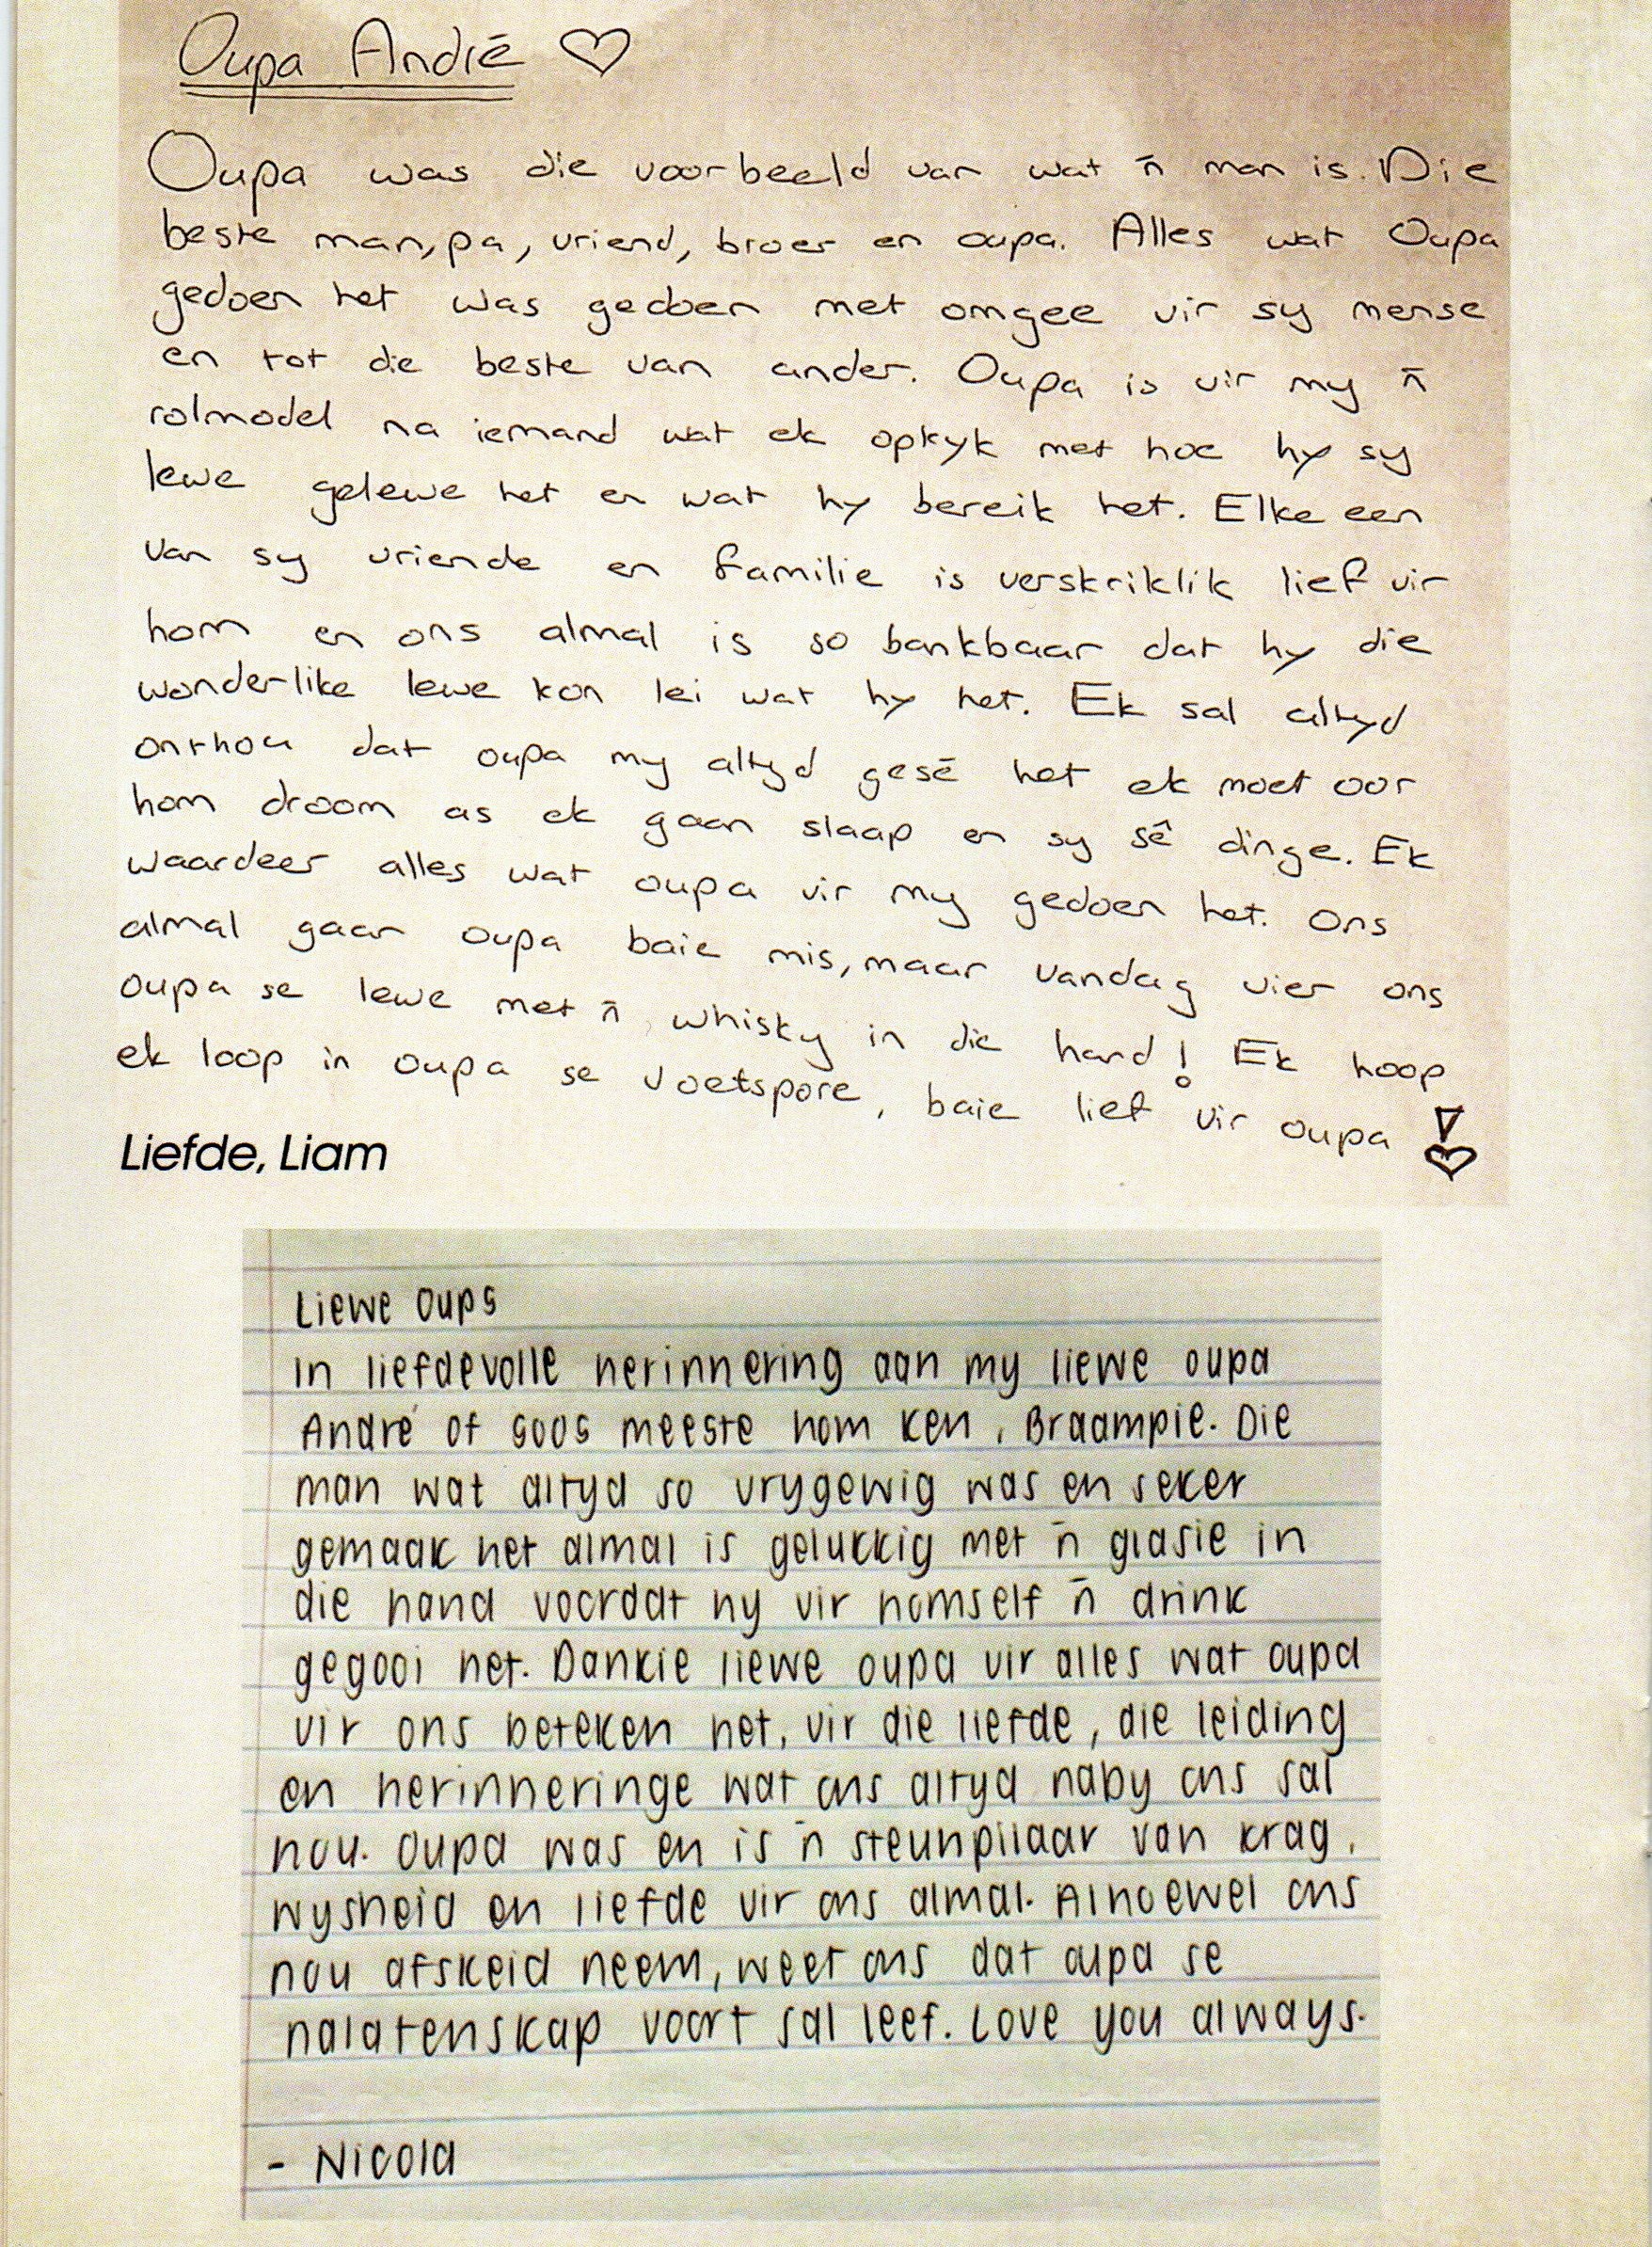 Oupa André ♡
Oupa was die voorbeeld van wat 'n man is. Die
beste man, pa, vriend, broer en oupa. Alles wat Oupa
gedoen het was gedoen met omgee vir sy mense
en tot die beste van ander. Oupa is vir my 'n
rolmodel na iemand wat ek opkyk met hoe hy sy
lewe gelewe het en wat hy bereik het. Elke een
van sy vriende en familie is verskriklik lief vir
hom en ons almal is so bankbaar dat hy die
wonderlike lewe kon lei wat hy het. Ek sal altyd
onthou dat oupa my altyd gesê het ek moet oor
hom droom as ek gaan slaap en sy sê dinge. Ek
waardeer alles wat oupa vir my gedoen het. Ons
almal gaan oupa baie mis, maar vandag vier ons
oupa se lewe met 'n whisky in die hand! Ek hoop
ek loop in oupa se voetspore, baie lief vir oupa !
Liefde, Liam
Liewe Oups
In liefdevolle herinnering aan my liewe oupa
André of soos meeste hom ken, Braampie. Die
man wat altyd so vrygewig was en seker
gemaak het almal is gelukkig met 'n glasie in
die hand voordat hy vir homself 'n drink
gegooi het. Dankie liewe oupa vir alles wat oupa
vir ons beteken het, vir die liefde, die leiding
en herinneringe wat ons altyd naby ons sal
hou. Oupa was en is 'n steunpilaar van krag,
wysheid en liefde vir ons almal. Alhoewel ons
nou afskeid neem, weet ons dat oupa se
nalatenskap voort sal leef. Love you always.
- Nicola